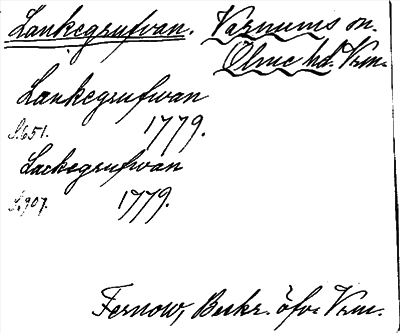 Lankegrufvan. Varnums sn.
Ölme hd. Vrm.
Lankegrufwan
S. 651. 1779.
Lackegrufwan
S. 907. 1779.
Fernow, Beskr. öfv. Vrm.